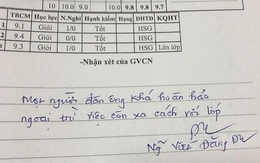 10 10.0 9.0 10.0 9.8 9.8 9.7
TBCM Học lực N.Nghỉ Hạnh kiểm Hạng DHTD KQHT
1 9.1 Giỏi 1/0 Tốt HSG
2 9.4 Giỏi 0/0 Tốt HSG
9.3 Giỏi 1/0 Tốt HSG Lên lớp
-Nhận xét của GVCN
Một người đàn ông khá hoàn hảo
ngoại trừ việc còn xa cách với lớp
Ng Việt Đăng Du